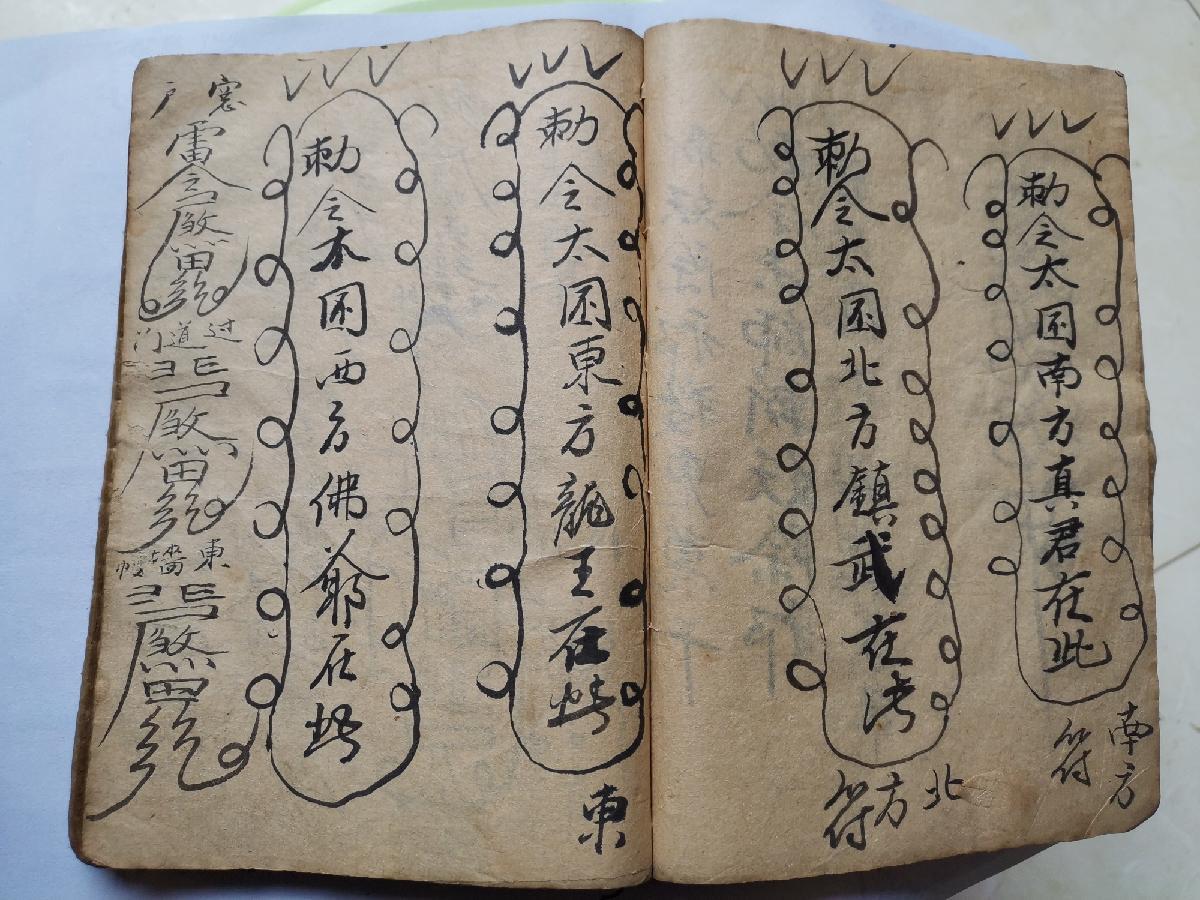 勅令太国南方真君在此
南方
符
勅令太国北方鎮武在此
北方
符
勅令太国東方龍王在此
東
勅令太国西方佛爺在此
窓户
雷令煞
过道门
煞
東墙
煞